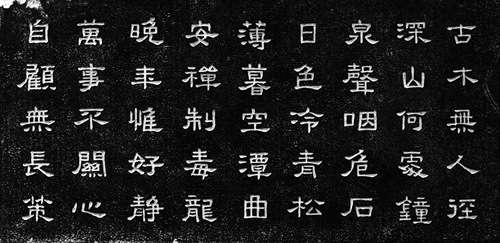 古木無人徑
深山何處鐘
泉聲咽危石
日色冷青松
薄暮空潭曲
安禪制毒龍
晚年惟好静
萬事不關心
自顧無長策